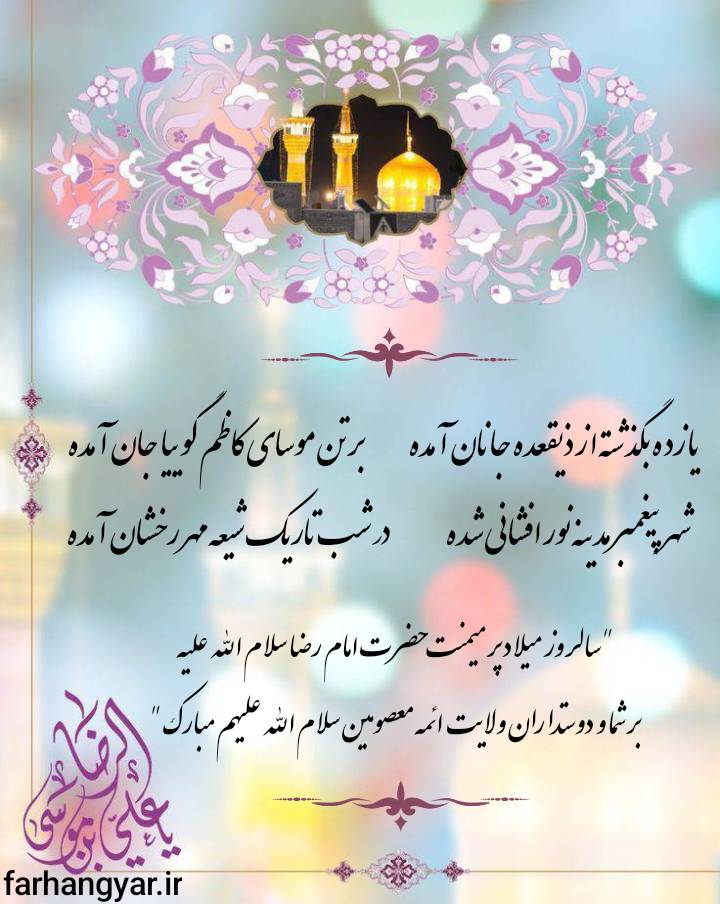 یازده بگذشته از ذیقعده جانان آمده بر تن موسای کاظم گوییا جان آمده
شهر پیغمبر مدینه نور افشانی شده در شب تاریک شیعه مهر رخشان آمده
"سالروز میلاد پر میمنت حضرت امام رضا سلام الله علیه
بر شما و دوستداران ولایت ائمه معصومین سلام الله علیهم مبارک"
یا علی بن موسی الرضا
farhangyar.ir